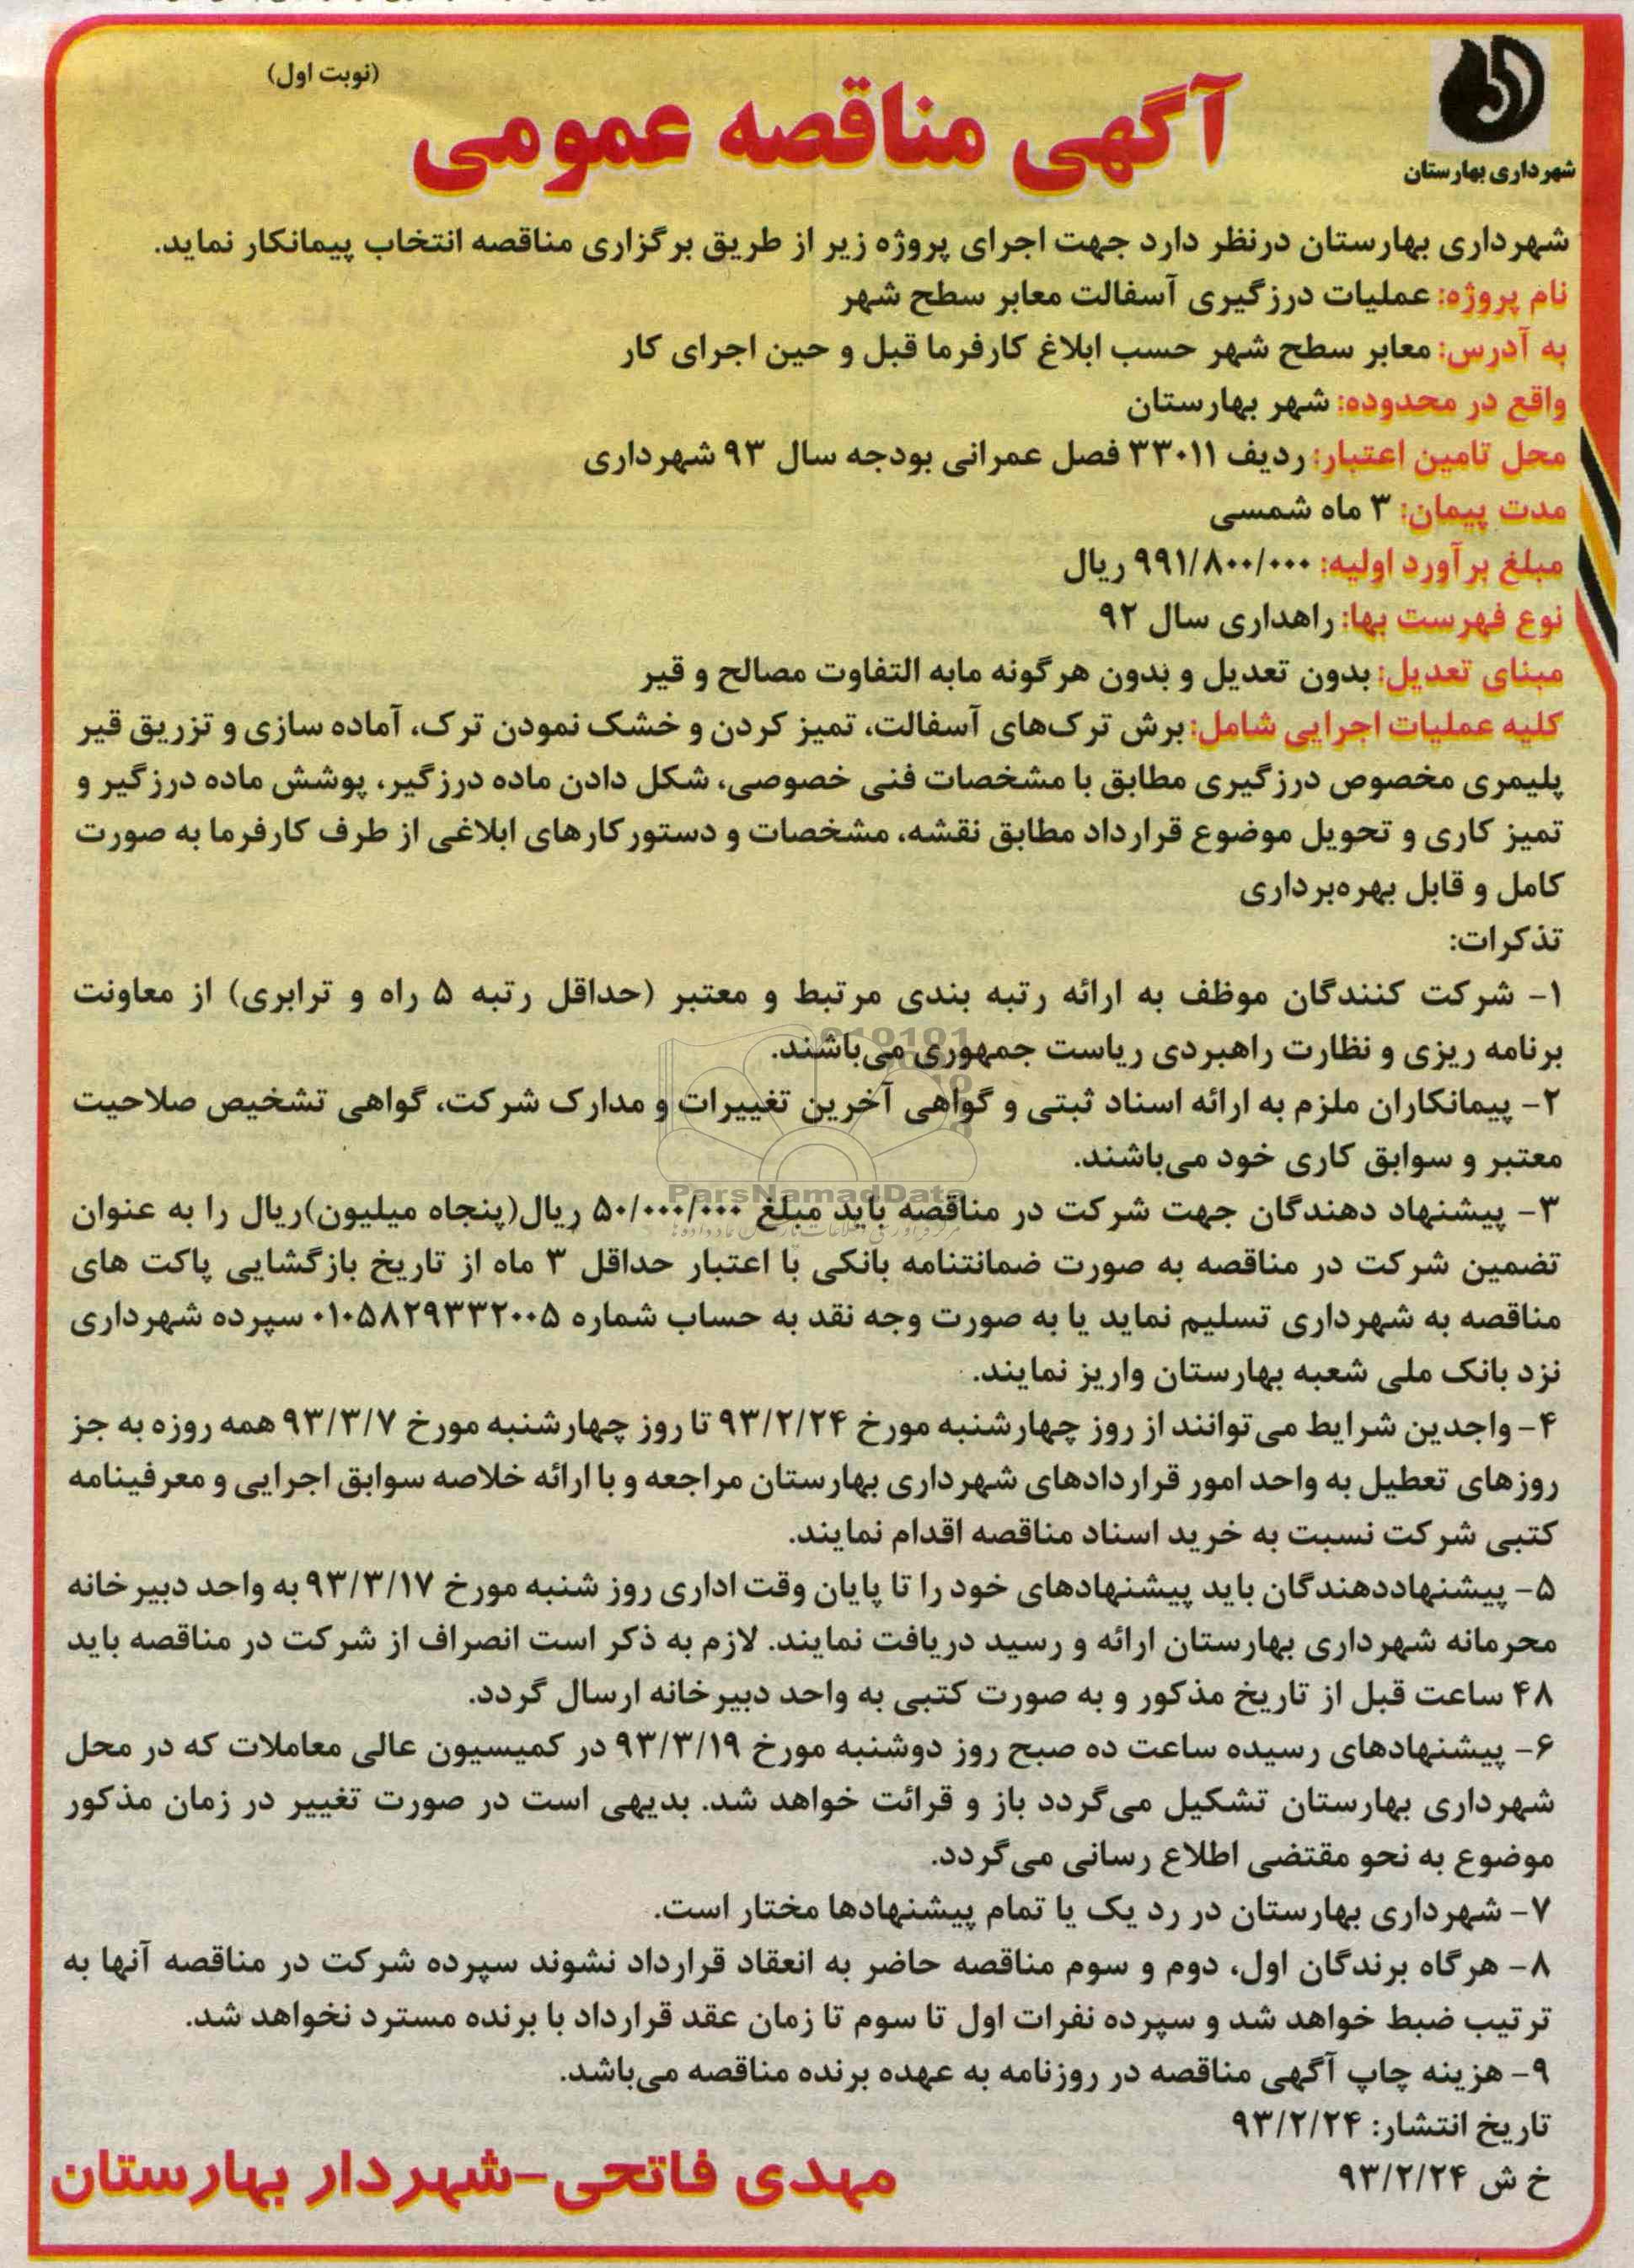 (نوبت اول)
آگهی مناقصه عمومی
شهرداری بهارستان
شهرداری بهارستان درنظر دارد جهت اجرای پروژه زیر از طریق برگزاری مناقصه انتخاب پیمانکار نماید.
نام پروژه: عملیات درزگیری آسفالت معابر سطح شهر
به آدرس: معابر سطح شهر حسب ابلاغ کارفرما قبل و حین اجرای کار
واقع در محدوده: شهر بهارستان
محل تامین اعتبار: ردیف ۳۳۰۱۱ فصل عمرانی بودجه سال ۹۳ شهرداری
مدت پیمان: ۳ ماه شمسی
مبلغ برآورد اولیه: ۹۹۱/۸۰۰/۰۰۰ ریال
نوع فهرست بها: راهداری سال ۹۲
مبنای تعدیل: بدون تعدیل و بدون هرگونه مابه التفاوت مصالح و قیر
کلیه عملیات اجرایی شامل: برش ترک‌های آسفالت، تمیز کردن و خشک نمودن ترک، آماده سازی و تزریق قیر
پلیمری مخصوص درزگیری مطابق با مشخصات فنی خصوصی، شکل دادن ماده درزگیر، پوشش ماده درزگیر و
تمیز کاری و تحویل موضوع قرارداد مطابق نقشه، مشخصات و دستورکارهای ابلاغی از طرف کارفرما به صورت
کامل و قابل بهره‌برداری
تذکرات:
۱- شرکت کنندگان موظف به ارائه رتبه بندی مرتبط و معتبر (حداقل رتبه ۵ راه و ترابری) از معاونت
برنامه ریزی و نظارت راهبردی ریاست جمهوری می‌باشند.
۲- پیمانکاران ملزم به ارائه اسناد ثبتی و گواهی آخرین تغییرات و مدارک شرکت، گواهی تشخیص صلاحیت
معتبر و سوابق کاری خود می‌باشند.
ParsNamadData
۳- پیشنهاد دهندگان جهت شرکت در مناقصه باید مبلغ ۵۰/۰۰۰/۰۰۰ ریال(پنجاه میلیون)ریال را به عنوان
تضمین شرکت در مناقصه به صورت ضمانتنامه بانکی با اعتبار حداقل ۳ ماه از تاریخ بازگشایی پاکت های
مناقصه به شهرداری تسلیم نماید یا به صورت وجه نقد به حساب شماره ۰۱۰۵۸۲۹۳۳۲۰۰۵ سپرده شهرداری
نزد بانک ملی شعبه بهارستان واریز نمایند.
۴- واجدین شرایط می‌توانند از روز چهارشنبه مورخ ۹۳/۲/۲۴ تا روز چهارشنبه مورخ ۹۳/۳/۷ همه روزه به جز
روزهای تعطیل به واحد امور قراردادهای شهرداری بهارستان مراجعه و با ارائه خلاصه سوابق اجرایی و معرفینامه
کتبی شرکت نسبت به خرید اسناد مناقصه اقدام نمایند.
۵- پیشنهاددهندگان باید پیشنهادهای خود را تا پایان وقت اداری روز شنبه مورخ ۹۳/۳/۱۷ به واحد دبیرخانه
محرمانه شهرداری بهارستان ارائه و رسید دریافت نمایند. لازم به ذکر است انصراف از شرکت در مناقصه باید
۴۸ ساعت قبل از تاریخ مذکور و به صورت کتبی به واحد دبیرخانه ارسال گردد.
۶- پیشنهادهای رسیده ساعت ده صبح روز دوشنبه مورخ ۹۳/۳/۱۹ در کمیسیون عالی معاملات که در محل
شهرداری بهارستان تشکیل می‌گردد باز و قرائت خواهد شد. بدیهی است در صورت تغییر در زمان مذکور
موضوع به نحو مقتضی اطلاع رسانی می‌گردد.
۷- شهرداری بهارستان در رد یک یا تمام پیشنهادها مختار است.
۸- هرگاه برندگان اول، دوم و سوم مناقصه حاضر به انعقاد قرارداد نشوند سپرده شرکت در مناقصه آنها به
ترتیب ضبط خواهد شد و سپرده نفرات اول تا سوم تا زمان عقد قرارداد با برنده مسترد نخواهد شد.
۹- هزینه چاپ آگهی مناقصه در روزنامه به عهده برنده مناقصه می‌باشد.
تاریخ انتشار: ۹۳/۲/۲۴
خ ش ۹۳/۲/۲۴
مهدی فاتحی-شهردار بهارستان